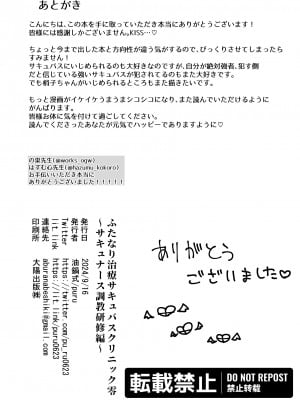 あとがき
こんにちは、この本を手に取っていただき本当にありがとうございます！
皆様には感謝しかございません。KISS…♡
ちょっと今まで出した本と方向性が違う気がするので、びっくりさせてしまったら
すみません！
サキュバスにいじめられるのも大好きなのですが、自分が絶対強者、犯す側
だと信じている強いサキュバスが犯されてるのもまた大好きです。
でも梢子ちゃんがいじめられるところもまた描きたいです。
もっと漫画がイケイケうまうまシコシコになり、また読んでいただけるように
がんばります。
皆様お体に気を付けて過ごしてください。
読んでくださったあなたが元気でハッピーでありますように♡
の泉先生(@works_ogw)
はずむ心先生(@hazumu_kokoro)
お手伝いいただき本当に
ありがとうございました！！！！！
ふたなり治療サキュバスクリニック零
～サキュナース調教研修編～
発行日 2024/9/16
発行者 油鍋式/puru
Twitter https://twitter.com/pu_ru0623
lit.link https://lit.link/puru0623
連絡先 aburanabeshiki@gmail.com
印刷所 大陽出版㈱
ありがとう
ございました♡
転載禁止
DO NOT
REPOST